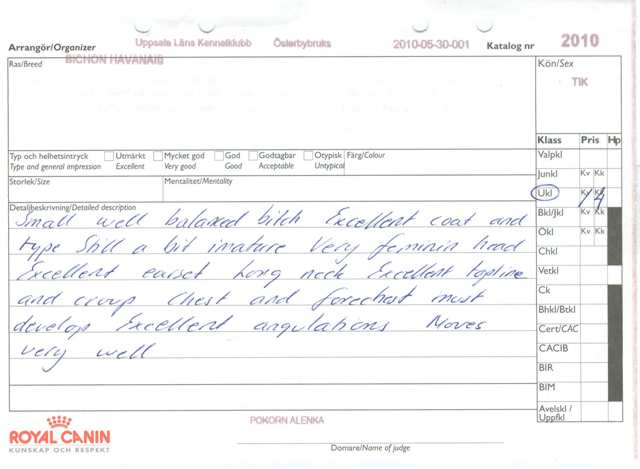 Arrangör/Organizer Uppsala Läns Kennelklubb Österbybruks 2010-05-30-001 Katalog nr 2010
Ras/Breed BICHON HAVANAIS Kön/Sex
TIK
Klass Pris Hp
Typ och helhetsintryck Utmärkt Mycket god God Godtagbar Otypisk Färg/Colour Valpkl
Type and general impression Excellent Very good Good Acceptable Untypical
Junkl Kv Kk
Storlek/Size Mentalitet/Mentality
Ukl Kv Kk 1 4
Detaljbeskrivning/Detailed description
Small well balanced bitch Excellent coat and Bkl/Jkl Kv Kk
type Still a bit imature Very feminin head Ökl Kv Kk
Chkl
Excellent earset Long neck Excellent topline Vetkl
and croup Chest and forechest must Ck
Bhkl/Btkl
develop Excellent angulations Moves Cert/CAC
very well CACIB
BIR
BIM
Avelskl / Uppfkl
ROYAL CANIN
KUNSKAP OCH RESPEKT
POKORN ALENKA
Domare/Name of judge